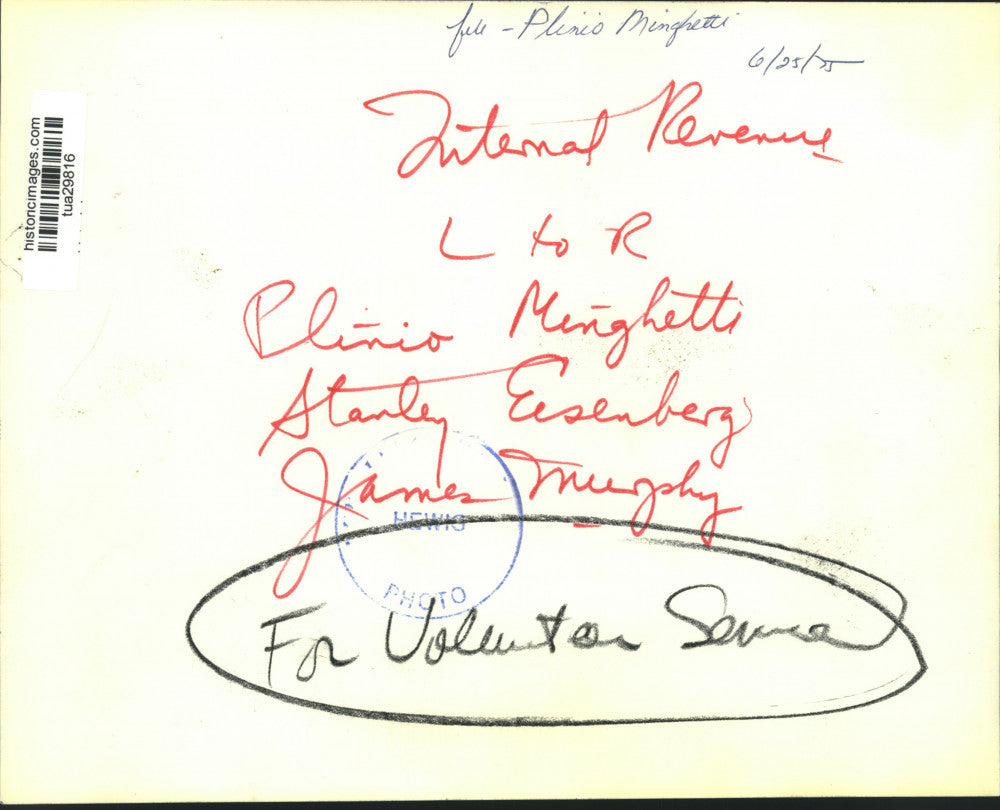 file - Plinio Minghetti
6/25/75
historicimages.com
tua29816
Internal Revenue
L to R
Plinio Minghetti
Stanley Eisenberg
James Murphy
PHOTO
For Volunteer Service